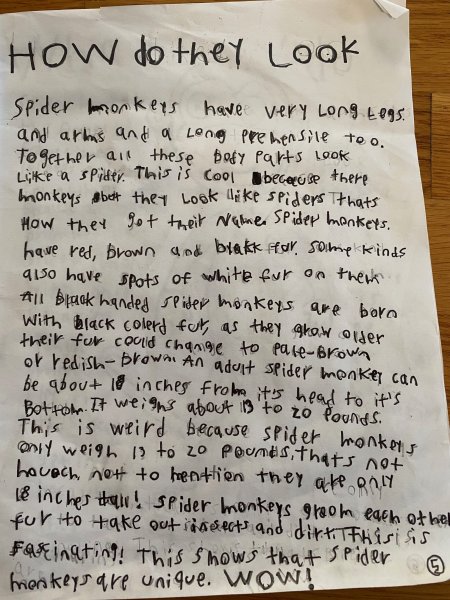 HOW do they Look
Spider monkeys have very Long Legs.
and arms and a Long prehensile too.
Together all these body parts Look
Like a spider. This is cool because there
monkeys but they Look like spiders thats
How they got their Name. Spider monkeys.
have red, brown and black fur. some kinds
also have spots of white fur on them
All black handed spider monkeys are born
With black colerd fur, as they grow older
their fur could change to pale-brown
or redish-brown. An adult spider monkey can
be about 18 inches from it's head to it's
Bottom. It weighs about 13 to 20 pounds.
This is weird because spider monkeys
only weigh 13 to 20 pounds, thats not
, not to mention they are only
18 inches tall! spider monkeys groom each other
fur to take out insects and dirt. This is
Fascinating! This shows that spider
monkeys are unique. WOW!
5